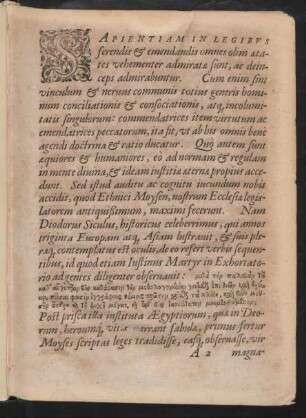 SAPIENTIAM IN LEGIBVS
ferendis & emendandis omnes olim æta-
tes vehementer admiratæ sunt, ac dein-
ceps admirabuntur. Cum enim sint
vinculum & neruus communis totius generis homi-
num conciliationis & consociationis, atq́; incolumi-
tatis singulorum: commendatrices item virtutum ac
emendatrices peccatorum, ita fit, vt ab his omnis benè
agendi doctrina & ratio ducatur. Quò autem sunt
æquiores & humaniores, eo ad normam & regulam
in mente diuina, & ideam iustitiæ æternæ propius acce-
dunt. Sed istud auditu ac cognitu iucundum nobis
accidit, quod Ethnici Moysen, nostrum Ecclesiæ legis-
latorem antiquissimum, maximi fecerunt. Nam
Diodorus Siculus, historicus celeberrimus, qui annos
triginta Europam atq́; Asiam lustrauit, & suis ple-
raq; contemplatus est oculis, de eo refert verbis sequen-
tibus, id quod etiam Iustinus Martyr in Exhortato-
rio ad gentes diligenter obseruauit:
Post prisca illa instituta Ægyptiorum, quæ in Deo-
rum, heroumq́; vita narrant fabulæ, primus fertur
Moyses scriptas leges tradidisse, easq́; obseruasse, vir
A 2 magna-